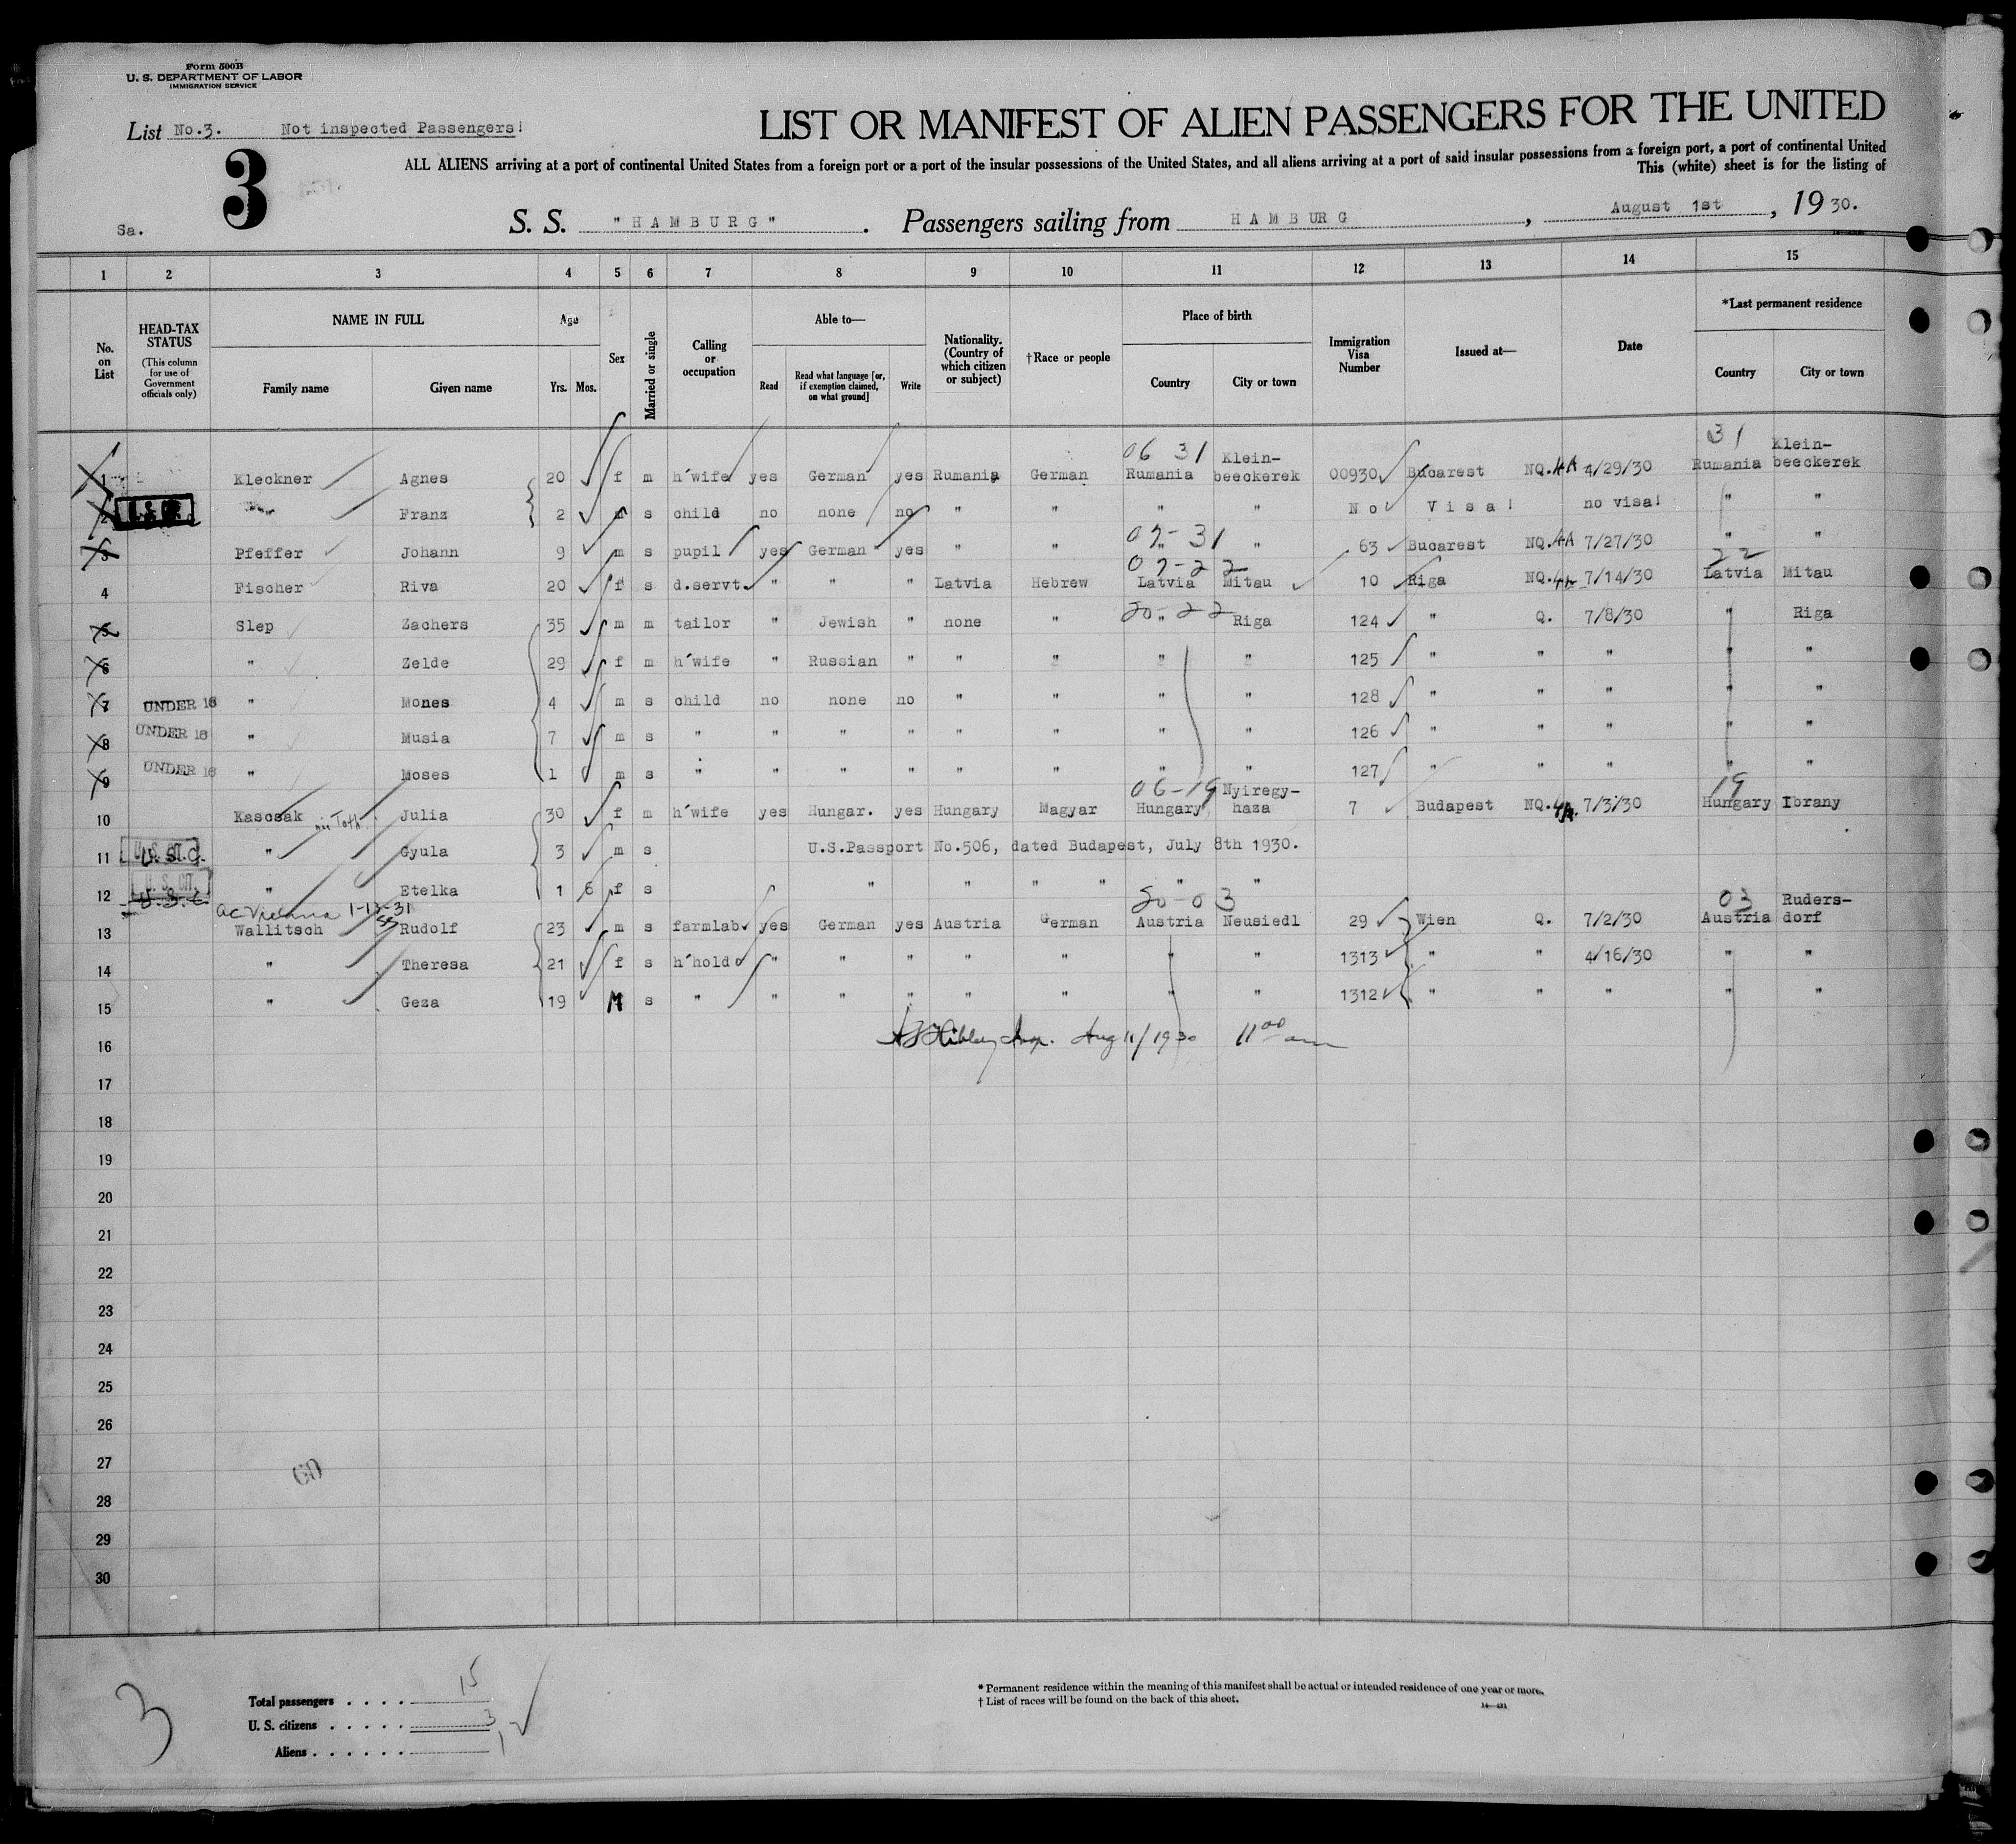 Form 500B
U. S. DEPARTMENT OF LABOR
IMMIGRATION SERVICE
List No.3. Not inspected Passengers!
3
Sa.
LIST OR MANIFEST OF ALIEN PASSENGERS FOR THE UNITED
ALL ALIENS arriving at a port of continental United States from a foreign port or a port of the insular possessions of the United States, and all aliens arriving at a port of said insular possessions from a foreign port, a port of continental United
This (white) sheet is for the listing of
S. S. "HAMBURG". Passengers sailing from HAMBURG, August 1st, 1930.
1 2 3 4 5 6 7 8 9 10 11 12 13 14 15
No. on List
HEAD-TAX STATUS
(This column for use of Government officials only)
NAME IN FULL
Family name Given name
Age
Yrs. Mos.
Sex
Married or single
Calling or occupation
Able to—
Read
Read what language [or, if exemption claimed, on what ground]
Write
Nationality. (Country of which citizen or subject)
†Race or people
Place of birth
Country City or town
Immigration Visa Number
Issued at—
Date
*Last permanent residence
Country City or town
06 31 31
1 Kleckner Agnes 20 f m h'wife yes German yes Rumania German Rumania Klein-beeckerek 00930 Bucarest NQ. 4/29/30 Rumania Klein-beeckerek
2 " Franz 2 m s child no none no " " " " No Visa! no visa!  " "
07-31
3 Pfeffer Johann 9 m s pupil yes German yes " " " " 63 Bucarest NQ. 7/27/30 " "
07-22 22
4 Fischer Riva 20 f s d.servt. " " " Latvia Hebrew Latvia Mitau 10 Riga NQ. 7/14/30 Latvia Mitau
20-22
5 Slep Zachers 35 m m tailor " Jewish " none " " Riga 124 " Q. 7/8/30 " Riga
6 " Zelde 29 f m h'wife " Russian " " " " " 125 " " " " "
7 UNDER 16 " Mones 4 m s child no none no " " " " 128 " " " " "
8 UNDER 16 " Musia 7 m s " " " " " " " " 126 " " " " "
9 UNDER 16 " Moses 1 m s " " " " " " " " 127 " " " " "
06-19 19
10 Kascsak née Toth Julia 30 f m h'wife yes Hungar. yes Hungary Magyar Hungary Nyiregy-haza 7 Budapest NQ. 7/3/30 Hungary Ibrany
11 U.S.C. " Gyula 3 m s U.S.Passport No.506, dated Budapest, July 8th 1930.
12 U. S. CIT. U.S.C " Etelka 1 6 f s " " " " " "
ac Vienna 1-13-31
20-03 03
13 Wallitsch Rudolf 23 m s farmlab. yes German yes Austria German Austria Neusiedl 29 Wien Q. 7/2/30 Austria Ruders-dorf
14 " Theresa 21 f s h'hold " " " " " " " 1313 " " 4/16/30 " "
15 " Geza 19 M s " " " " " " " " 1312 " " " " "
16 Insp. Aug 11/1930 11 00 am
17
18
19
20
21
22
23
24
25
26
27
28
29
30
3
Total passengers . . . . 15
U. S. citizens . . . . . 3
Aliens . . . . . .
* Permanent residence within the meaning of this manifest shall be actual or intended residence of one year or more.
† List of races will be found on the back of this sheet.